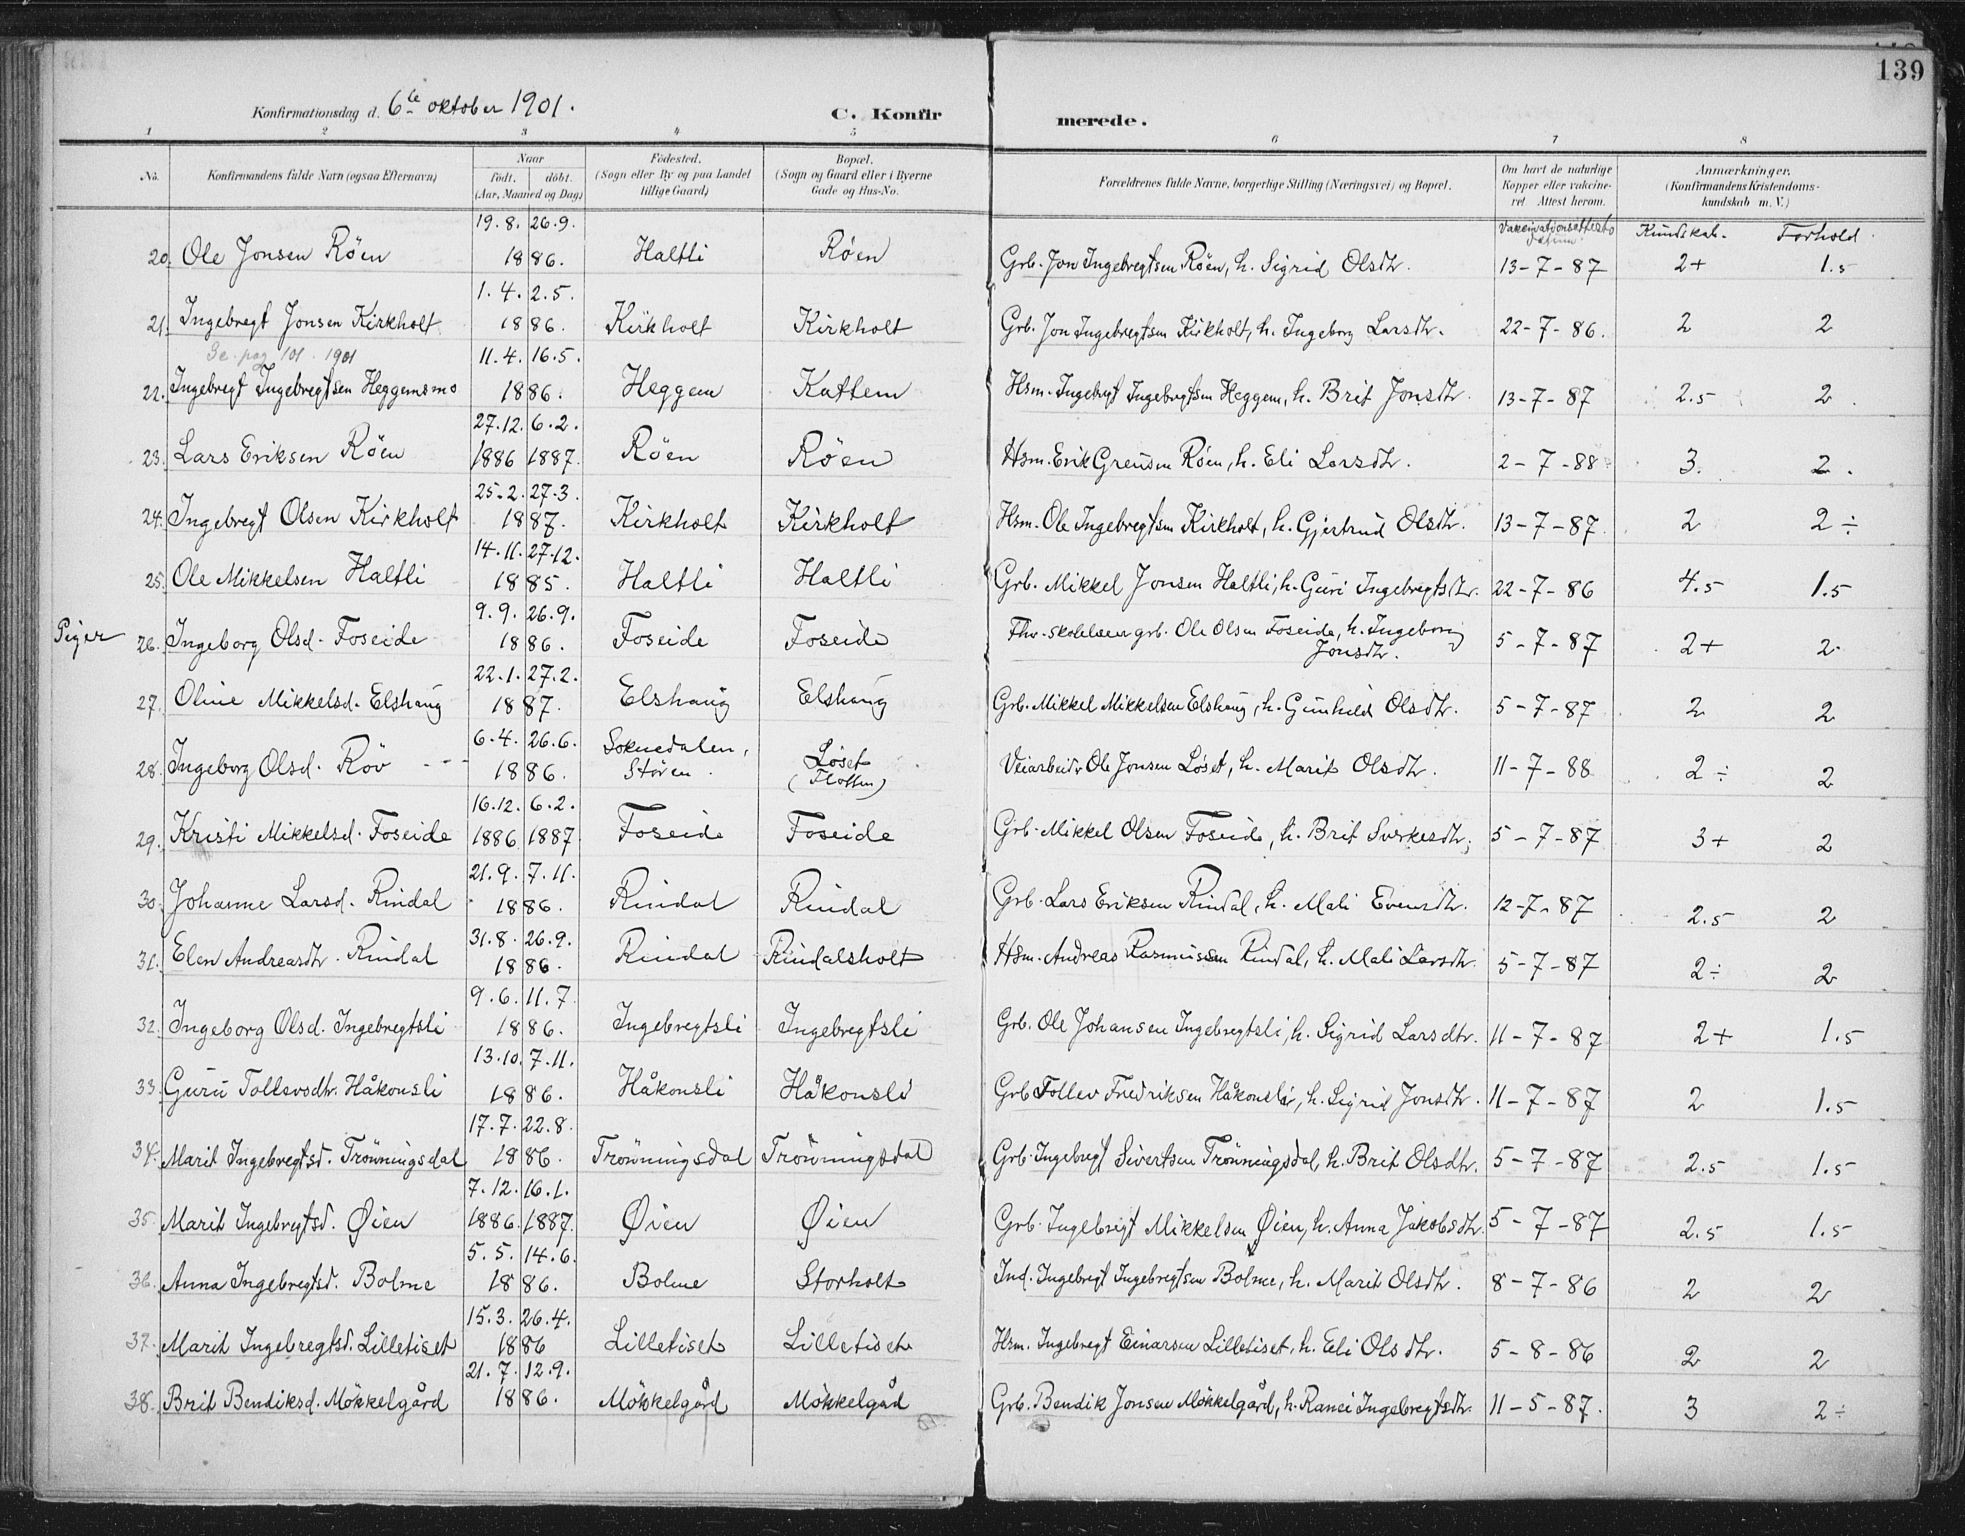 139
Konfirmationsdag d. 6te oktober 1901.
C. Konfirmerede.
1 2 3 4 5 6 7 8
No. | Konfirmandens fulde Navn (ogsaa Efternavn) | Naar født. døbt. (Aar, Maaned og Dag) | Fødested. (Sogn eller By og paa Landet tillige Gaard) | Bopæl. (Sogn og Gaard eller i Byerne Gade og Hus-No. | Forældrenes fulde Navne, borgerlige Stilling (Næringsvei) og Bopæl. | Om havt de naturlige Kopper eller vakcineret Attest herom. | Anmærkninger. (Konfirmandens Kristendomskundskab m. V.)
Vakcinationsattests datum | Kundskab. | Forhold.
20. Ole Jonsen Röen | 19.8. 26.9. 1886. | Haltli | Röen | Grb. Jon Ingebregtsen Röen, h. Sigrid Olsdtr. | 13-7-87 | 2+ | 1.5
21. Ingebregt Jonsen Kirkholt | 1.4. 2.5. 1886. | Kirkholt | Kirkholt | Grb. Jon Ingebregtsen Kirkholt, h. Ingeborg Larsdtr. | 22-7-86. | 2 | 2
Se pag 101. 1901
22. Ingebregt Ingebregtsen Heggemsmo | 11.4. 16.5. 1886. | Heggem | Kattem | Hsm. Ingebregt Ingebregtsen Heggem, h. Brit Jonsdtr. | 13-7-87 | 2.5 | 2.
23. Lars Eriksen Röen | 27.12. 6.2. 1886 1887. | Röen | Röen | Hsm. Erik Greusen Röen, h. Eli Larsdtr. | 2-7-88 | 3. | 2.
24. Ingebregt Olsen Kirkholt | 25.2. 27.3. 1887. | Kirkholt | Kirkholt | Hsm. Ole Ingebregtsen Kirkholt, h. Gjertrud Olsdtr. | 13-7-87. | 2 | 2 ÷
25. Ole Mikkelsen Haltli | 14.11. 27.12. 1885. | Haltli | Haltli | Grb. Mikkel Jonsen Haltli, h. Guri Ingebregtsdtr. | 22-7-86 | 4.5 | 1.5
Piger
26. Ingeborg Olsd. Foseide | 9.9. 26.9. 1886. | Foseide | Foseide | Fhv. skolelærer grb. Ole Olsen Foseide, h. Ingeborg Jonsdtr. | 5-7-87 | 2+ | 2
27. Oline Mikkelsd. Elshaug | 22.1. 27.2. 1887. | Elshaug | Elshaug | Grb. Mikkel Mikkelsen Elshaug, h. Gunhild Olsdtr. | 5-7-87 | 2 | 2
28. Ingeborg Olsd. Röv | 6.4. 26.6. 1886. | Soknedalen, Stören. | Løset (Flotten) | Veiarbeider Ole Jonsen Løset, h. Marit Olsdtr. | 11-7-88 | 2 ÷ | 2
29. Kristi Mikkelsd. Foseide | 16.12. 6.2. 1886 1887 | Foseide | Foseide | Grb. Mikkel Olsen Foseide, h. Brit Sverkesdtr. | 5-7-87 | 3+ | 2
30. Johanne Larsd. Rindal | 21.9. 7.11. 1886. | Rindal | Rindal | Grb. Lars Eriksen Rindal, h. Mali Evensdtr. | 12-7-87 | 2.5 | 2
31. Elen Andreasdtr. Rindal | 31.8. 26.9. 1886. | Rindal | Rindalsholt | Hsm. Andreas Rasmussen Rindal, h. Mali Larsdtr. | 5-7-87 | 2÷ | 2
32. Ingeborg Olsd. Ingebregtsli | 9.6. 11.7. 1886. | Ingebregtsli | Ingebregtsli | Grb. Ole Johansen Ingebregtsli, h. Sigrid Larsdtr. | 11-7-87 | 2+ | 1.5
33. Guru Tollevsdtr. Håkonsli | 13.10. 7.11. 1886. | Håkonsli | Håkonsli | Grb. Tollev Fredriksen Håkonsli, h. Sigrid Jonsdtr. | 11-7-87 | 2 | 1.5
34. Marit Ingebregtsd. Trönningsdal | 17.7. 22.8. 1886. | Trönningsdal | Trönningsdal | Grb. Ingebregt Sivertsen Trönningsdal, h. Brit Olsdtr. | 5-7-87 | 2.5 | 1.5
35. Marit Ingebregtsd. Øien | 7.12. 16.1. 1886. 1887. | Øien | Øien | Grb. Ingebregt Mikkelsen Øien, h. Anna Jakobsdtr. | 5-7-87 | 2.5 | 1.5
36. Anna Ingebregtsd. Bolme | 5.5. 14.6. 1886. | Bolme | Storholt | Ind. Ingebregt Ingebregtsen Bolme, h. Marit Olsdtr. | 8-7-86 | 2 | 2
37. Marit Ingebregtsd. Lilletiset | 15.3. 26.4. 1886 | Lilletiset | Lilletiset | Hsm. Ingebregt Einarsen Lilletiset, h. Eli Olsdtr. | 5-8-86 | 2 | 2
38. Brit Bendiksd. Mökkelgård | 21.7. 12.9. 1886. | Mökkelgård | Mökkelgåd | Grb. Bendik Jonsen Mökkelgård, h. Ranei Ingebregtsdtr. | 11-5-87. | 3 | 2÷